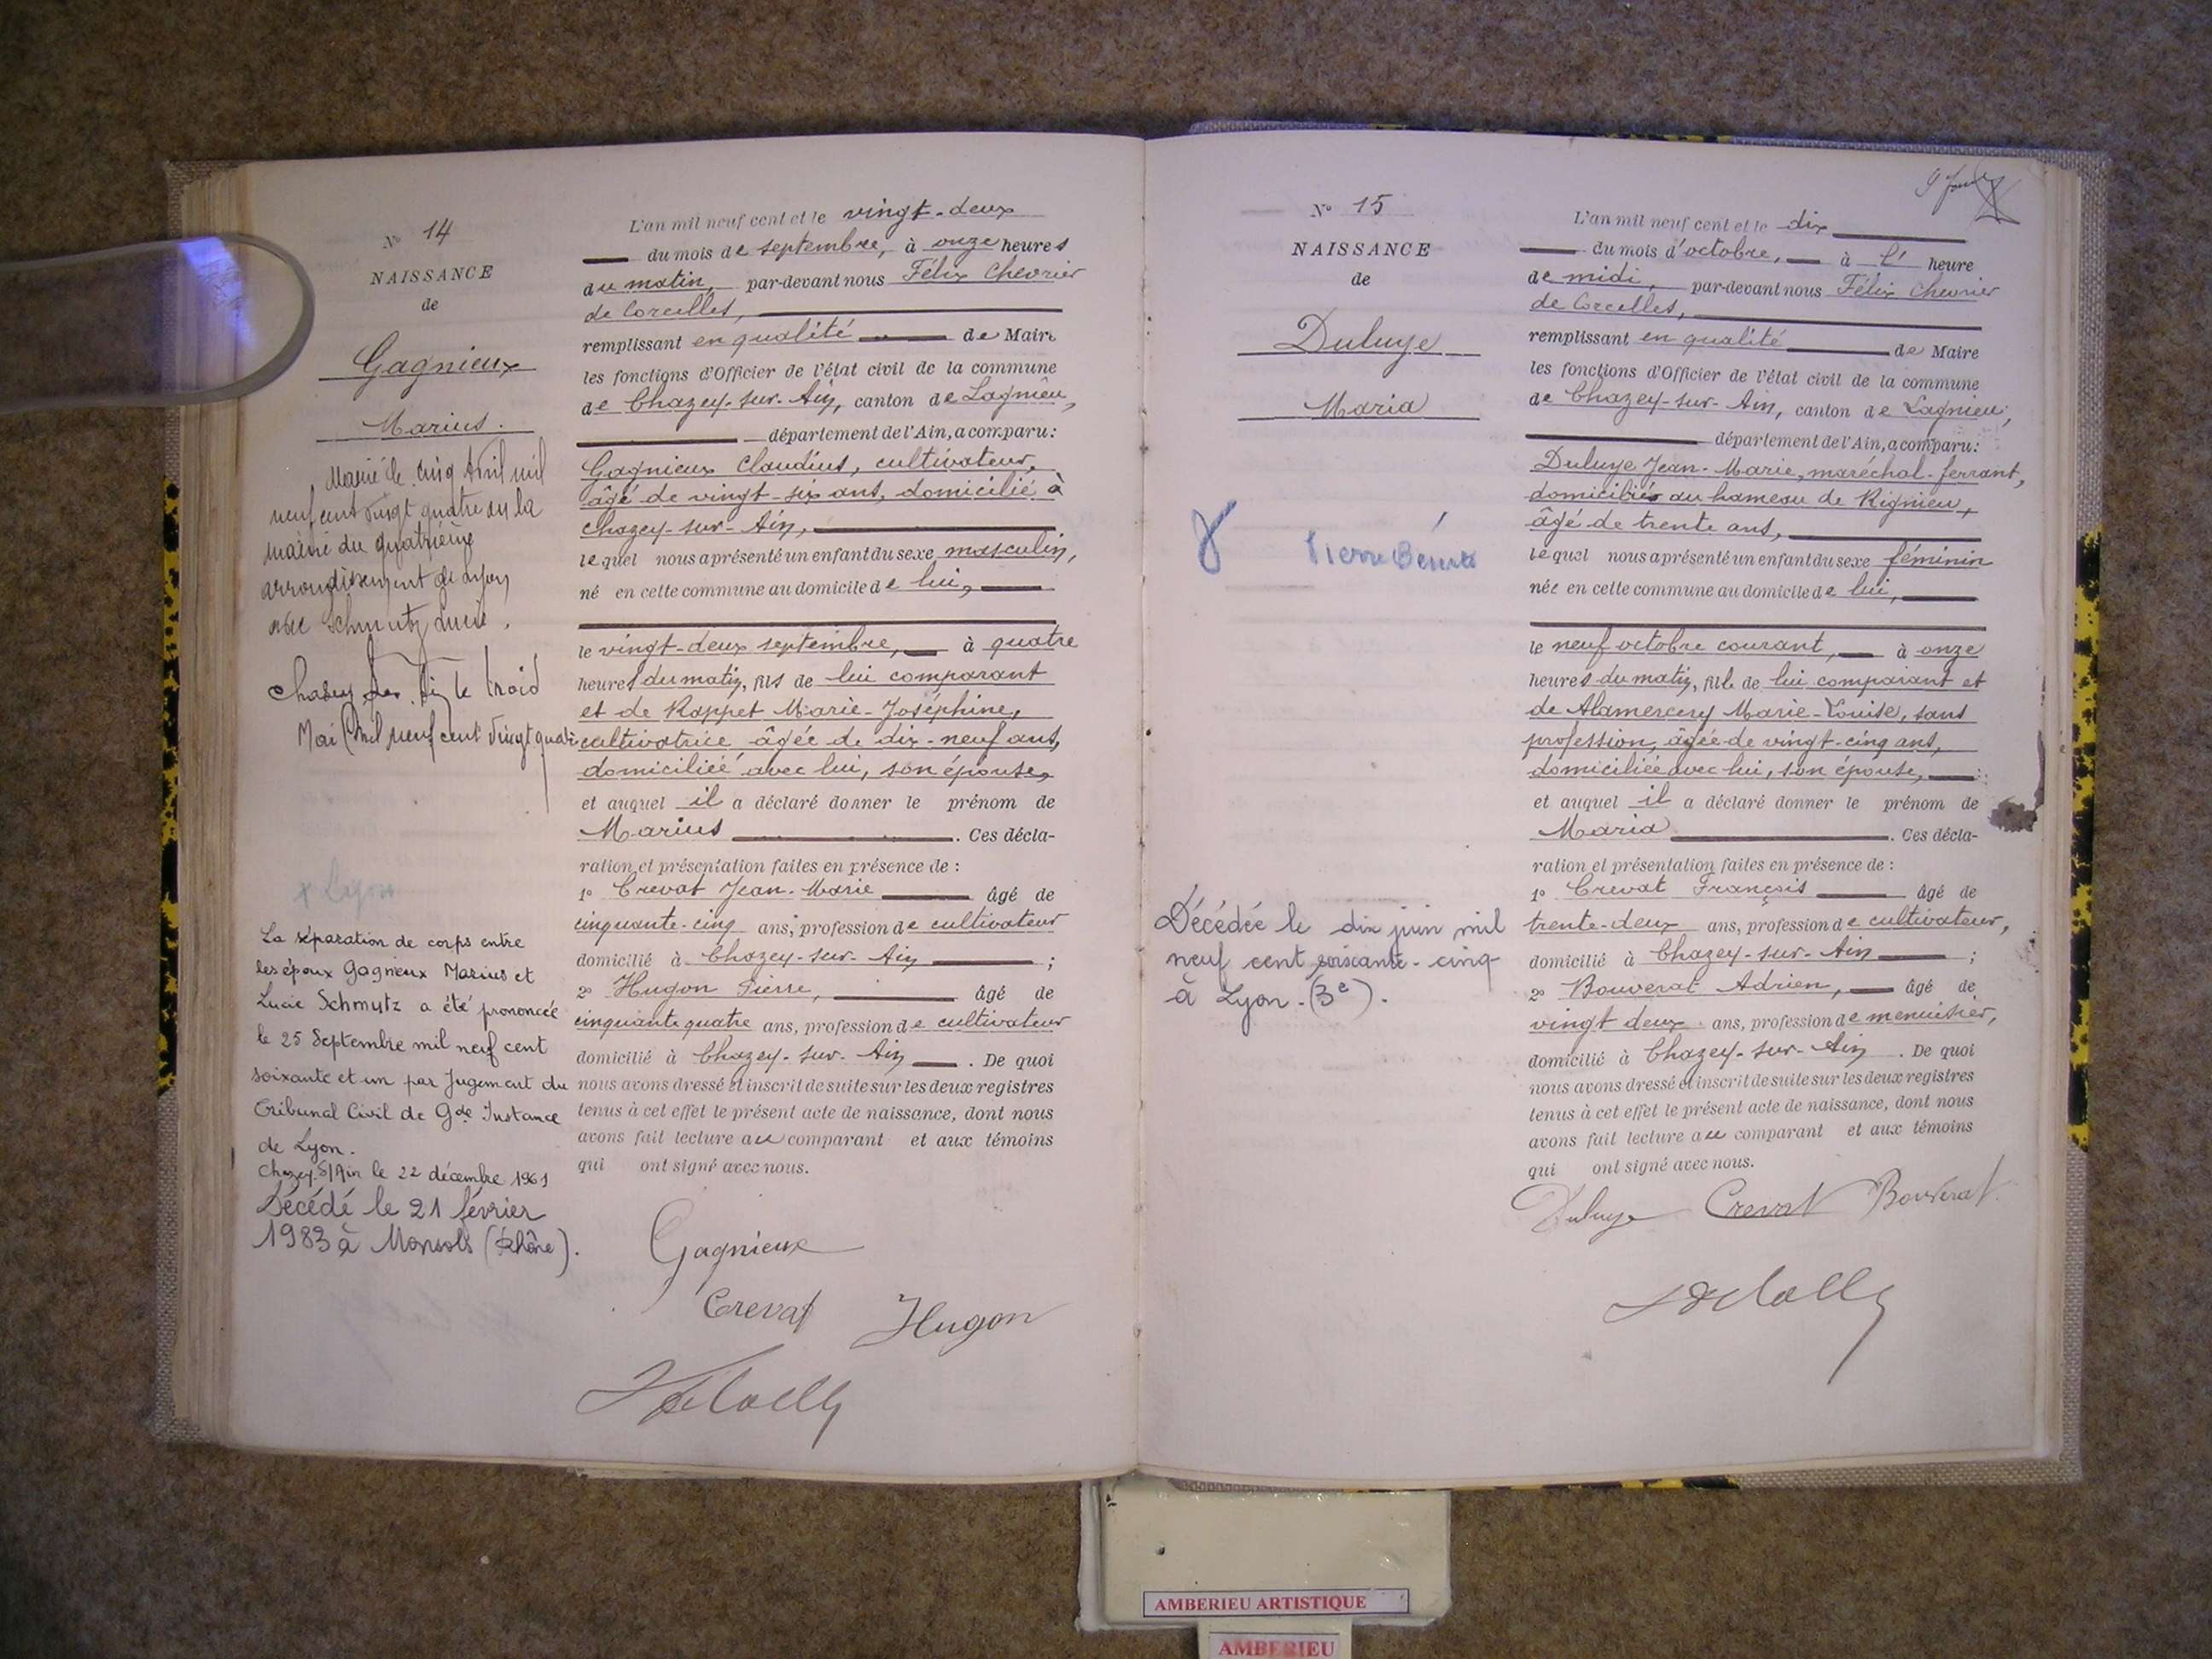 N° 14
NAISSANCE
de
Gagnieux
Marius.
Marié le cinq Avril mil
neuf cent vingt quatre en la
mairie du quatrième
arrondissement de Lyon
avec Schmutz Lucie.
Chazey sur Ain le trois
Mai mil neuf cent vingt quatre
+ Lyon
La séparation de corps entre
les époux Gagnieux Marius et
Lucie Schmytz a été prononcée
le 25 Septembre mil neuf cent
soixante et un par Jugement du
Tribunal Civil de Gde Instance
de Lyon.
Chazey S/Ain le 22 décembre 1961
Décédé le 21 février
1983 à Monsols (Rhône).
L'an mil neuf cent et le vingt-deux
du mois de septembre, à onze heures
du matin, par-devant nous Félix Chevrier
de Corcelles,
remplissant en qualité de Maire
les fonctions d'Officier de l'état civil de la commune
de Chazey-sur-Ain, canton de Lagnieu,
département de l'Ain, a comparu:
Gagnieux Claudius, cultivateur,
âgé de vingt-six ans, domicilié à
Chazey-sur-Ain,
lequel nous a présenté un enfant du sexe masculin,
né en cette commune au domicile de lui,
le vingt-deux septembre, à quatre
heures du matin, fils de lui comparant
et de Rappet Marie-Joséphine,
cultivatrice âgée de dix-neuf ans,
domiciliée avec lui, son épouse,
et auquel il a déclaré donner le prénom de
Marius. Ces décla-
ration et présentation faites en présence de :
1° Crevat Jean-Marie âgé de
cinquante-cinq ans, profession de cultivateur
domicilié à Chazey-sur-Ain ;
2° Hugon Pierre, âgé de
cinquante quatre ans, profession de cultivateur
domicilié à Chazey-sur-Ain. De quoi
nous avons dressé et inscrit de suite sur les deux registres
tenus à cet effet le présent acte de naissance, dont nous
avons fait lecture au comparant et aux témoins
qui ont signé avec nous.
Gagnieux
Crevat Hugon
N° 15
NAISSANCE
de
Duluye
Maria
Pierre Bénite
Décédée le dix juin mil
neuf cent soixante-cinq
à Lyon-(3e).
L'an mil neuf cent et le dix
du mois d'octobre, à l' heure
de midi, par-devant nous Félix Chevrier
de Corcelles,
remplissant en qualité de Maire
les fonctions d'Officier de l'état civil de la commune
de Chazey-sur-Ain, canton de Lagnieu,
département de l'Ain, a comparu:
Duluye Jean-Marie, maréchal-ferrant,
domicilié au hameau de Rignieu,
âgé de trente ans,
lequel nous a présenté un enfant du sexe féminin
née en cette commune au domicile de lui,
le neuf octobre courant, à onze
heures du matin, fille de lui comparant et
de Alamercery Marie-Louise, sans
profession, âgée de vingt-cinq ans,
domiciliée avec lui, son épouse,
et auquel il a déclaré donner le prénom de
Maria. Ces décla-
ration et présentation faites en présence de :
1° Crevat François âgé de
trente-deux ans, profession de cultivateur,
domicilié à Chazey-sur-Ain ;
2° Bouverat Adrien, âgé de
vingt deux ans, profession de menuisier,
domicilié à Chazey-sur-Ain. De quoi
nous avons dressé et inscrit de suite sur les deux registres
tenus à cet effet le présent acte de naissance, dont nous
avons fait lecture au comparant et aux témoins
qui ont signé avec nous.
Duluye Crevat Bouverat
AMBERIEU ARTISTIQUE
AMBERIEU